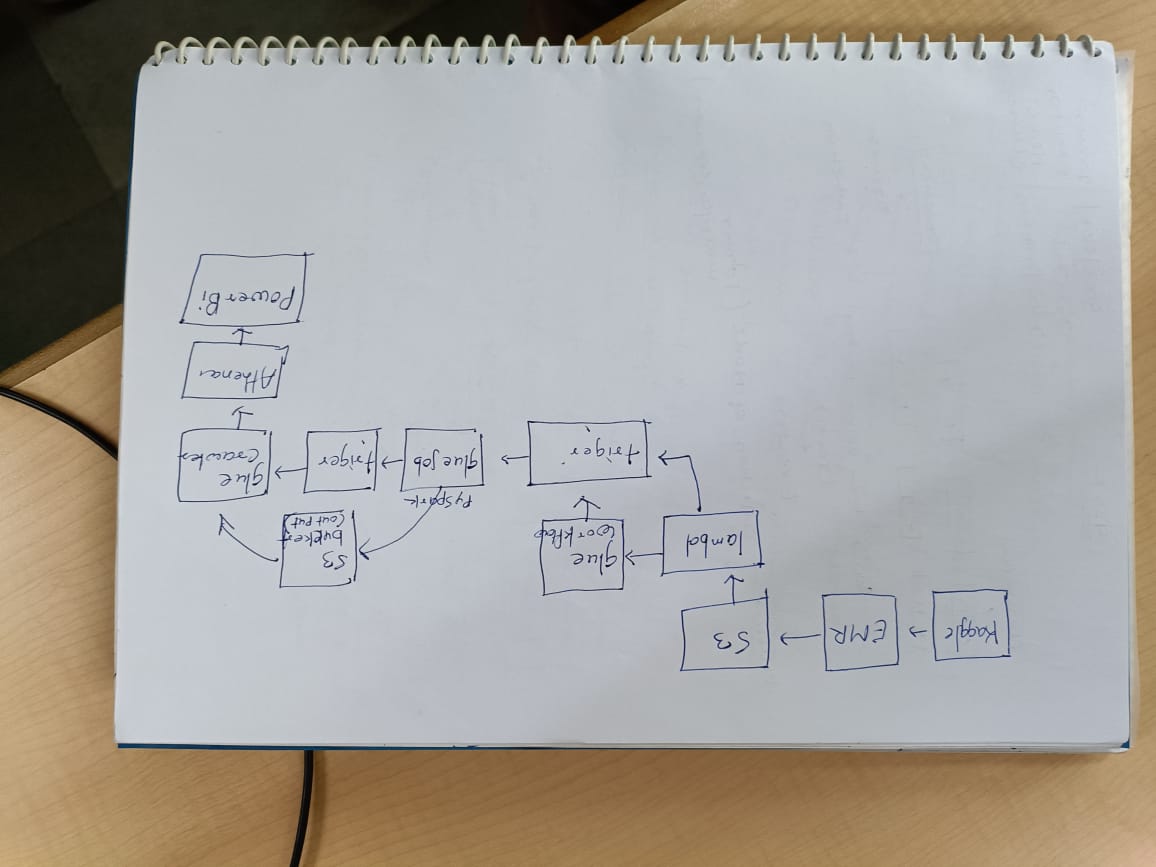 Kaggle
EMR
S3
lambd
glue
workflow
triger
PySpark
glue job
S3
bukket
(output)
triger
glue
Crawler
Athena
PowerBi